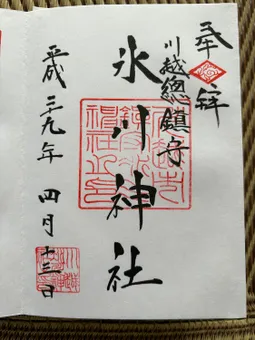 奉拝
川越總鎮守
氷川神社
平成二九年 四月 十三日